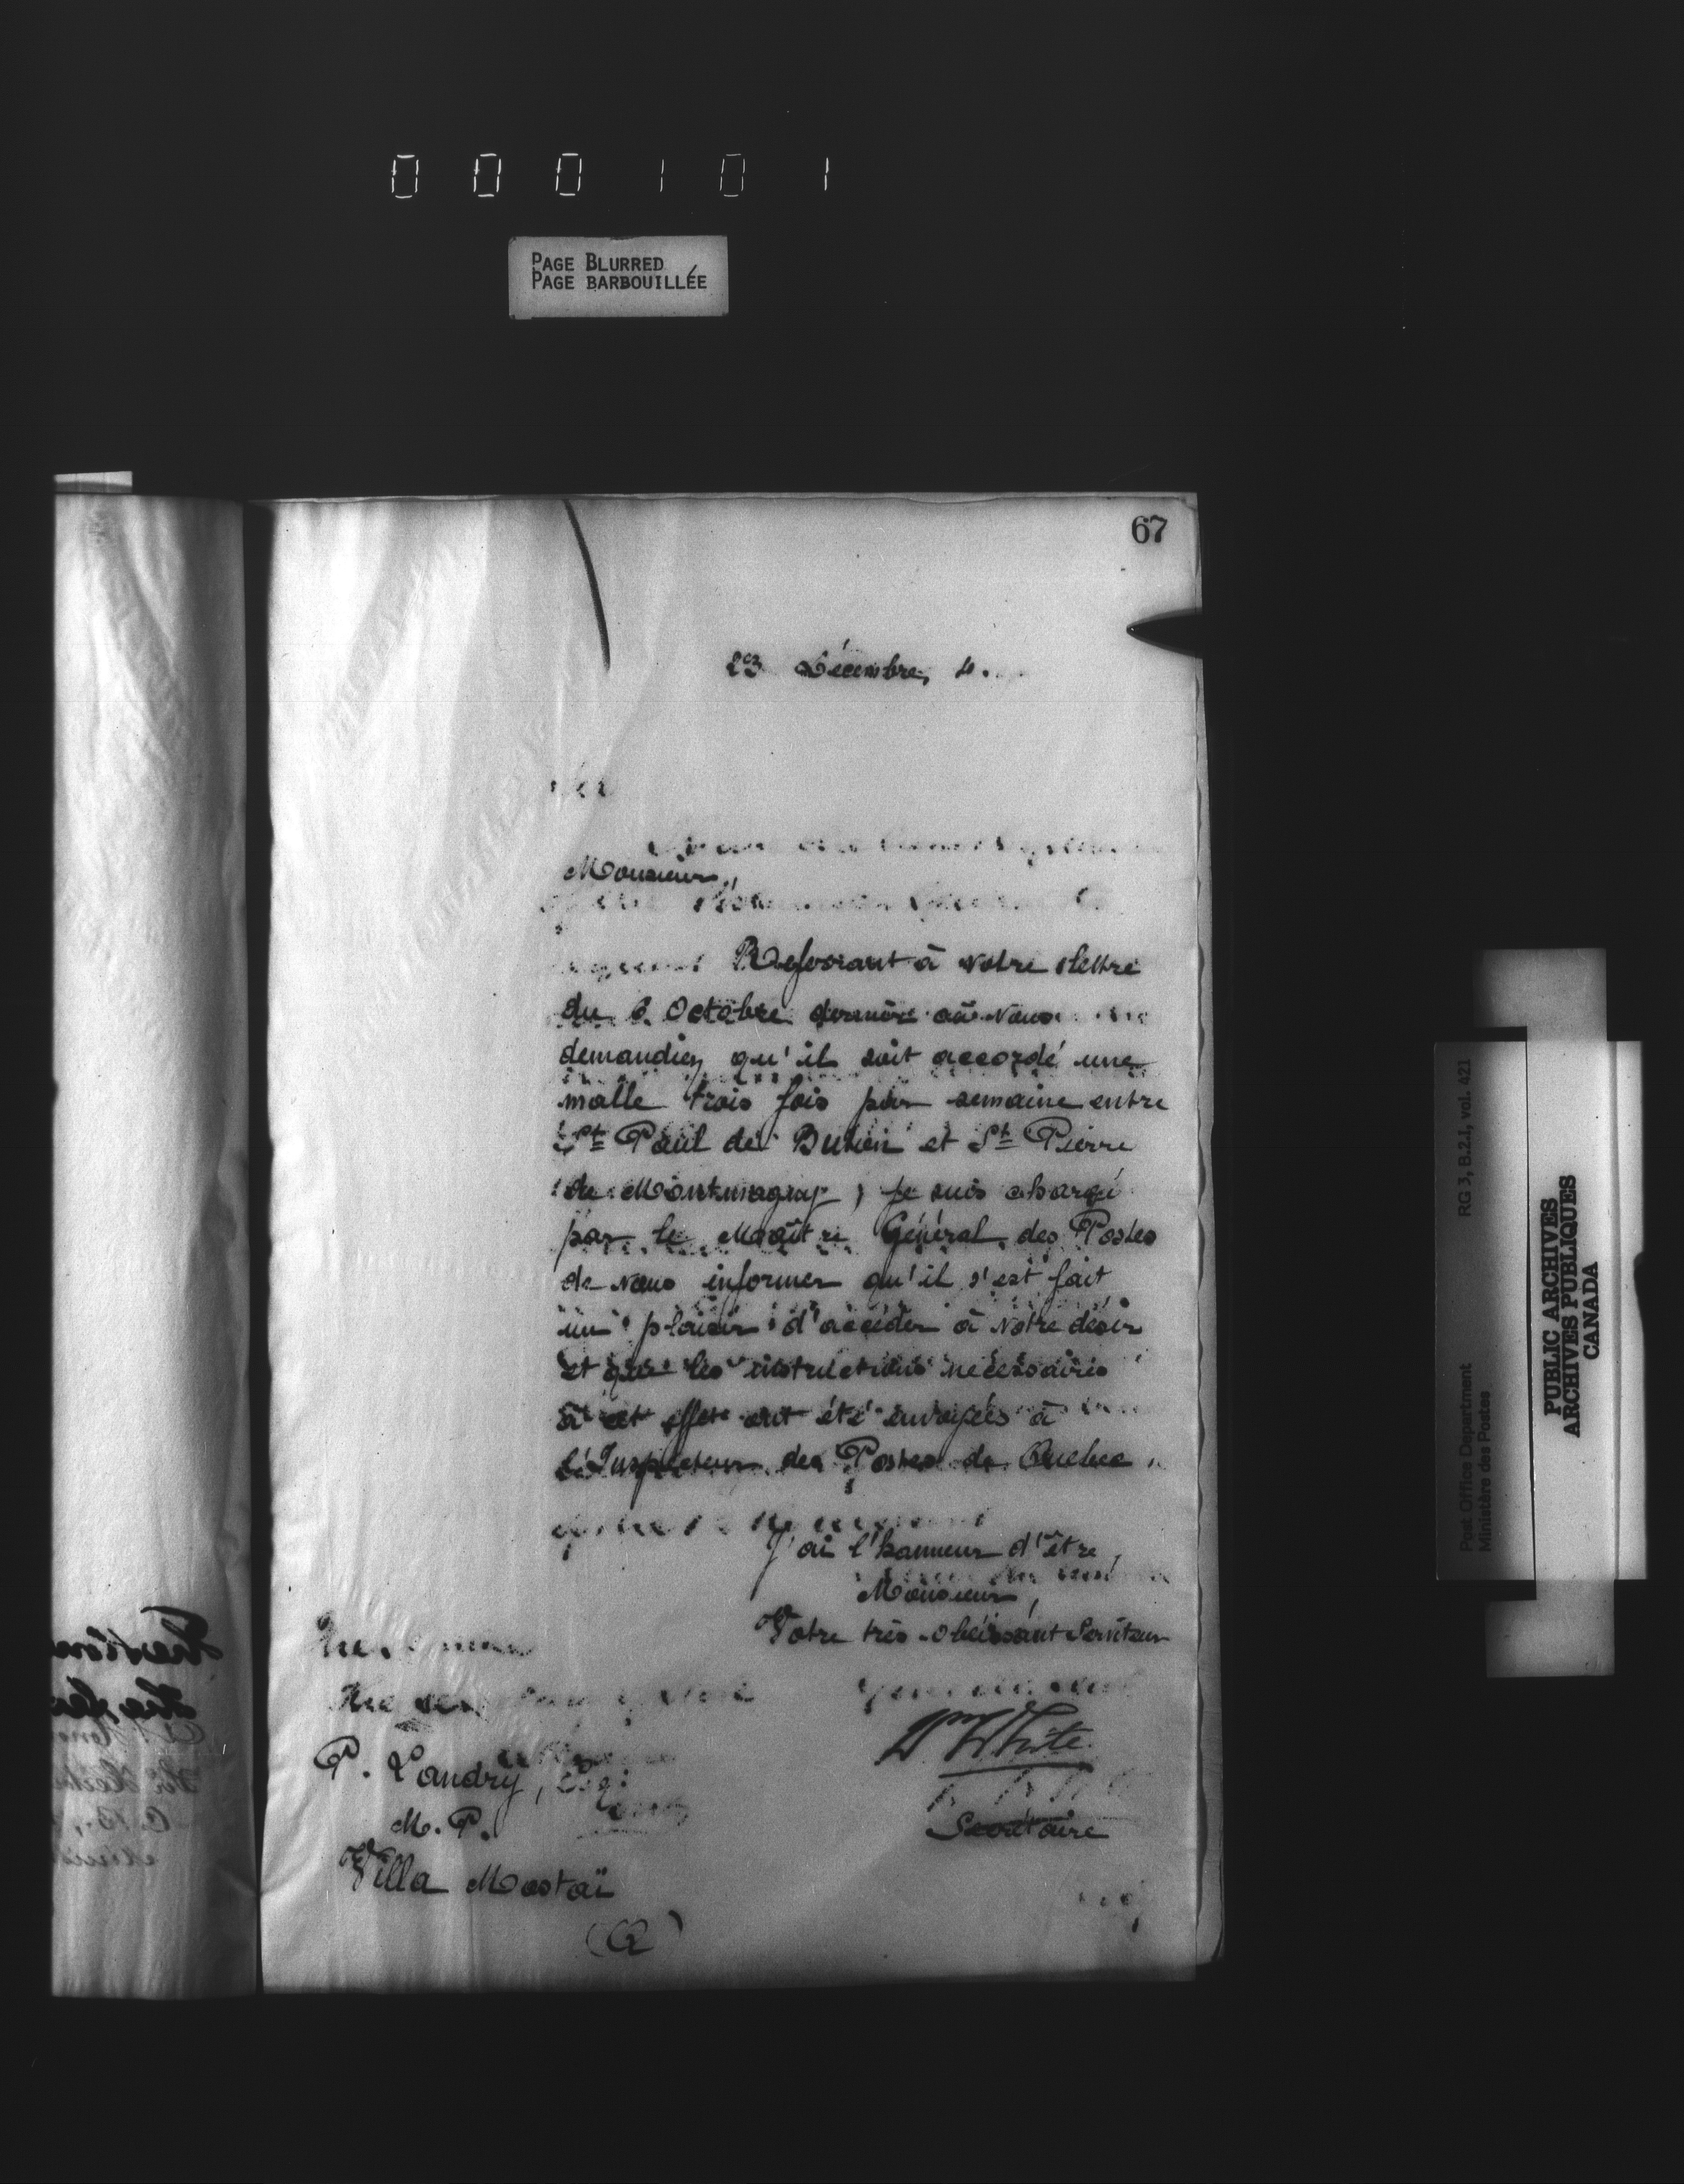 000101
PAGE BLURRED
PAGE BARBOUILLÉE
67
23 Décembre, 4.
Monsieur,
Referant à votre lettre
du 6 Octobre dernier où vous
demandiez qu'il soit accordé une
malle trois fois par semaine entre
St Paul de Buton et St Pierre
de Montmagny, je suis chargé
par le Maître Général des Postes
de vous informer qu'il s'est fait
un plaisir d'accéder à votre désir
et que les instructions nécessaires
à cet effet ont été envoyées à
l'Inspecteur des Postes de Quebec.
J'ai l'honneur d'être,
Monsieur,
Votre très-obéissant Serviteur
Wm White
Secrétaire
P. Landry, Esq:
M. P.
Villa Mastaï
RG 3, B.2.1, vol. 421
Post Office Department
Ministère des Postes
PUBLIC ARCHIVES
ARCHIVES PUBLIQUES
CANADA